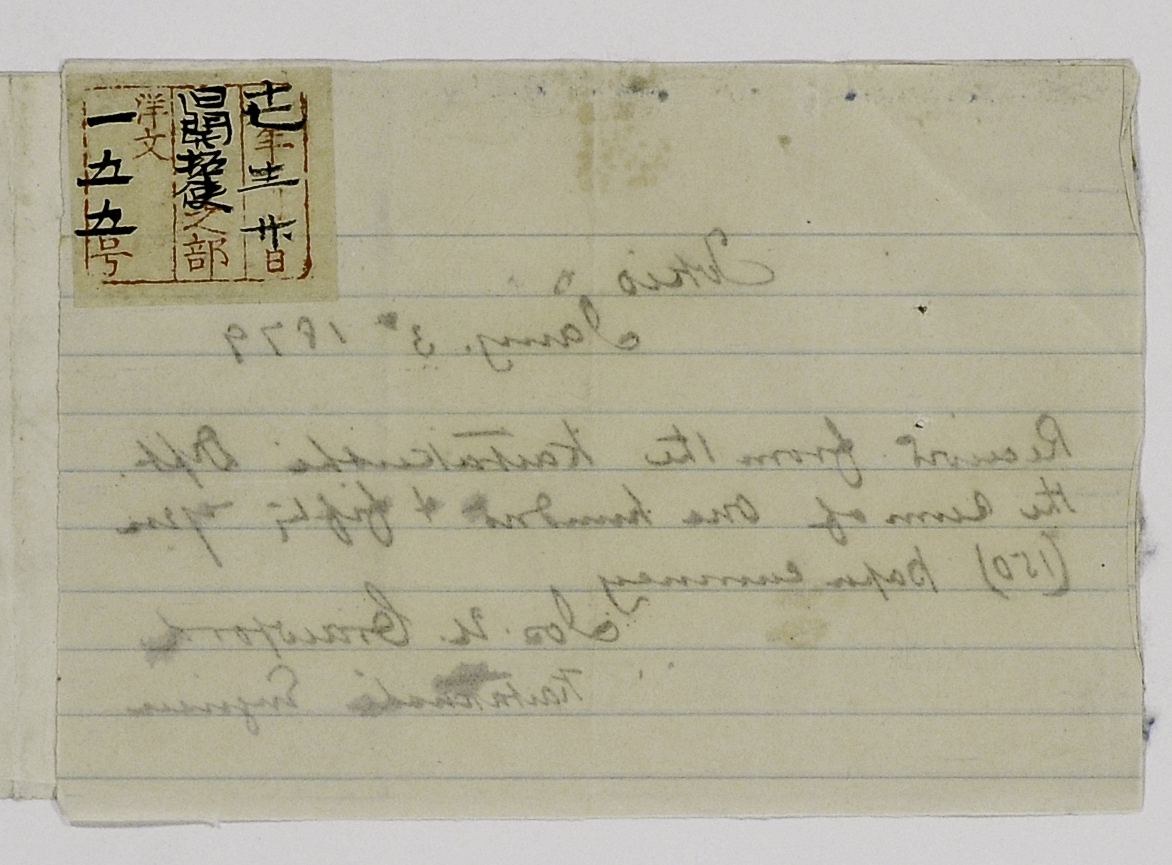 十七年十二月廿日
旧開拓使之部
洋文
一五五号
Tokio
Jany. 3d 1879
Received from the Kaitakushi Dept.
the sum of One hundred & fifty yen
(150) paper currency
Jos. U. Crawford
Kaitakushi Engineer